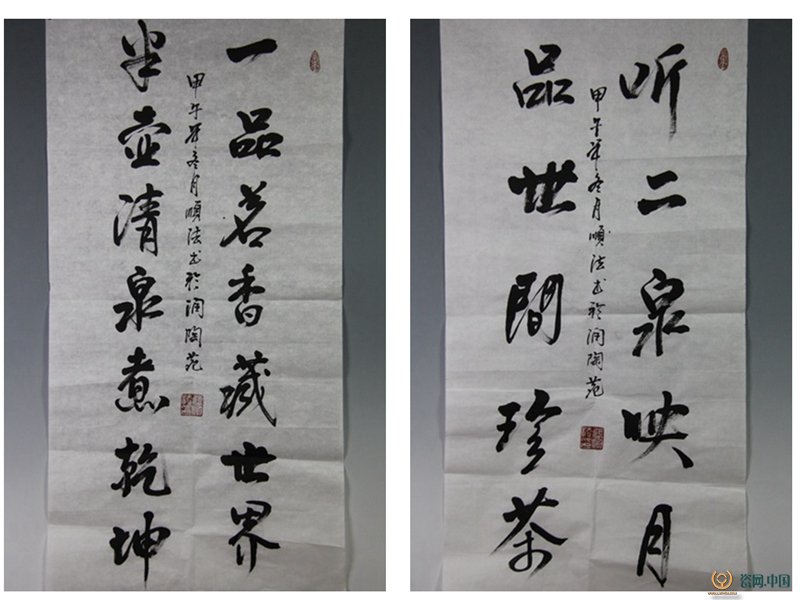 一品茗香藏世界
半壶清泉煮乾坤
甲午年冬月順法书於润陶苑
听二泉映月
品世間珍茶
甲午年冬月順法书於润陶苑
瓷网.中国